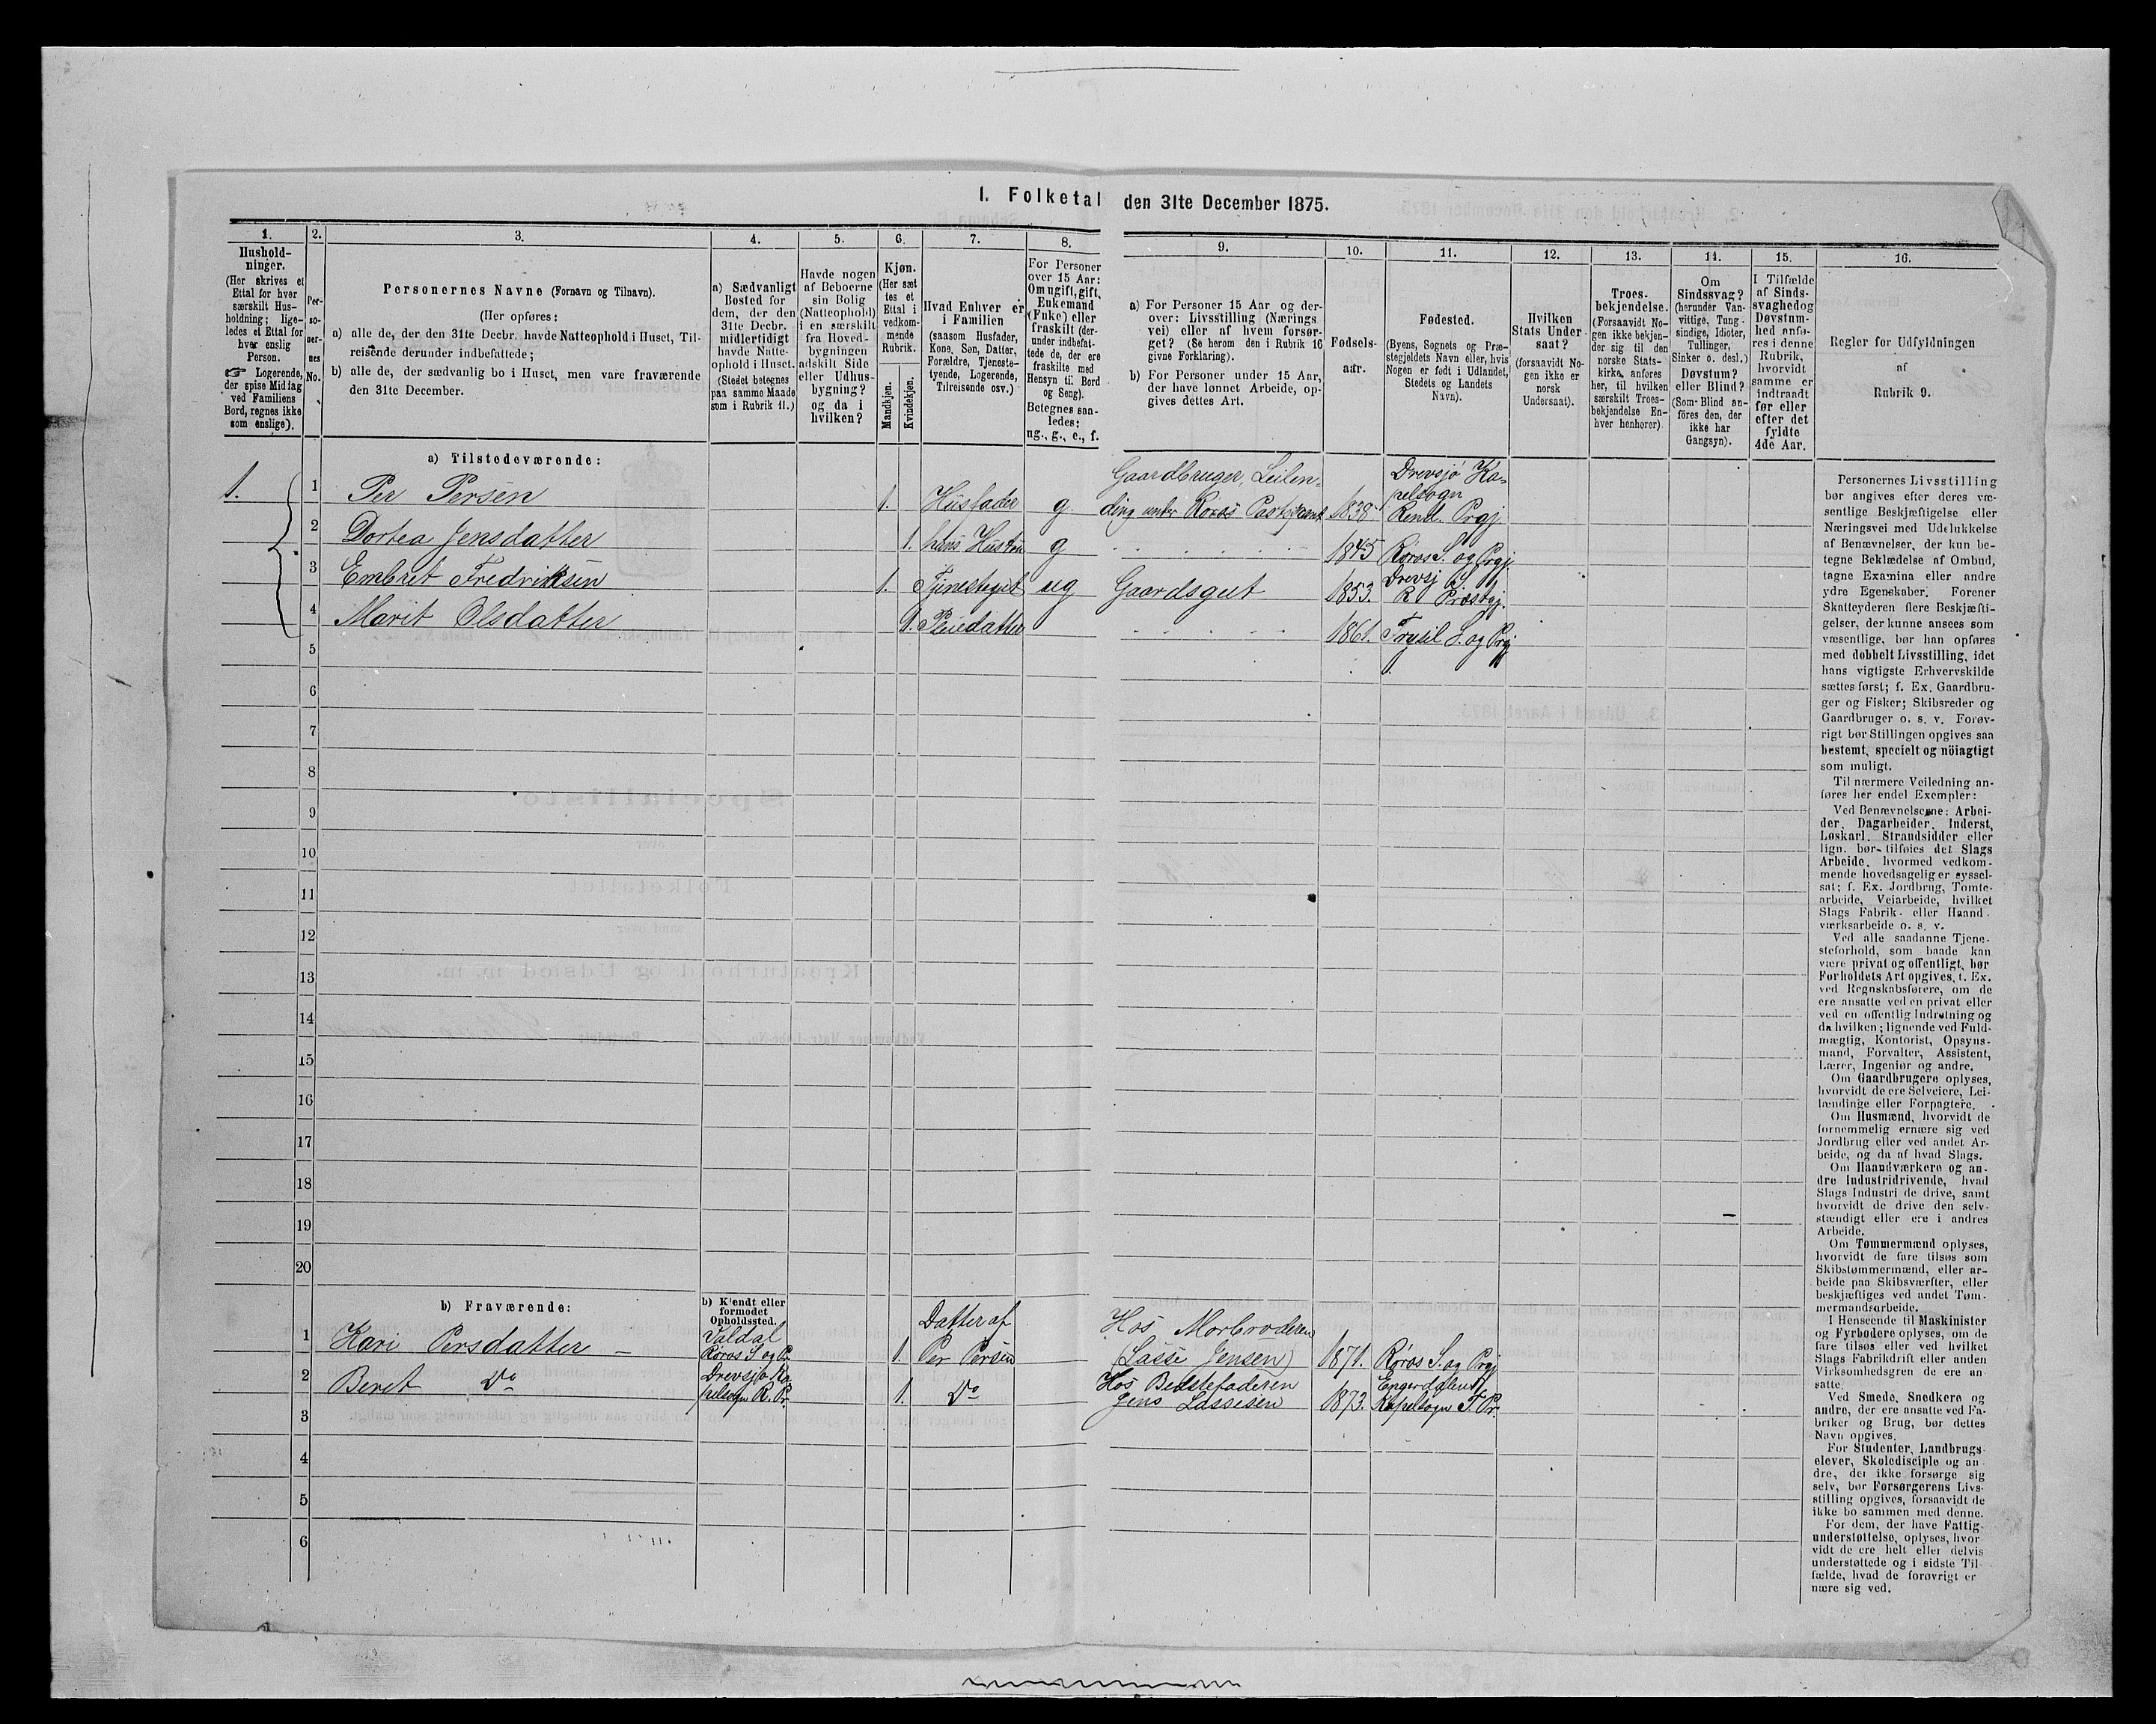 I. Folketal den 31te December 1875.
1.
Hushold-
ninger.
(Her skrives et
Ettal for hver
særskilt Hus-
holdning; lige-
ledes et Ettal for
hver enslig
Person.
☞ Logerende,
der spise Middag
ved Familiens
Bord, regnes ikke
som enslige).
2.
Per-
so-
ner-
nes
No.
3.
Personernes Navne (Fornavn og Tilnavn).
(Her opføres:
a) alle de, der den 31te Decbr. havde Natteophold i Huset, Til-
reisende derunder indbefattede;
b) alle de, der sædvanlig bo i Huset, men vare fraværende
den 31te December.
4.
a) Sædvanligt
Bosted for
dem, der den
31te Decbr.
midlertidigt
havde Natte-
ophold i Huset.
(Stedet betegnes
paa samme Maade
som i Rubrik 11.)
5.
Havde nogen
af Beboerne
sin Bolig
(Natteophold)
i en særskilt
fra Hoved-
bygningen
adskilt Side
eller Udhus-
bygning?
og da i
hvilken?
6.
Kjøn.
(Her sæt
tes et
Ettal i
vedkom-
mende
Rubrik.
Mandkjøn.
Kvindekjøn.
7.
Hvad Enhver er
i Familien
(saasom Husfader,
Kone, Søn, Datter,
Forældre, Tjeneste-
tyende, Logerende,
Tilreisende osv.)
8.
For Personer
over 15 Aar:
Om ugift, gift,
Enkemand
(Enke) eller
fraskilt (der-
under indbefat-
tede de, der ere
fraskilte med
Hensyn til Bord
og Seng).
Betegnes saa-
ledes:
ug., g., e., f.
9.
a) For Personer 15 Aar og der-
over: Livsstilling (Nærings
vei) eller af hvem forsør-
get? (Se herom den i Rubrik 16
givne Forklaring).
b) For Personer under 15 Aar,
der have lønnet Arbeide, op-
gives dettes Art.
10.
Fødsels-
aar.
11.
Fødested.
(Byens, Sognets og Præ-
stegjeldets Navn eller, hvis
Nogen er født i Udlandet,
Stedets og Landets
Navn).
12.
Hvilken
Stats Under-
saat?
(forsaavidt No-
gen ikke er
norsk
Undersaat).
13.
Troes-
bekjendelse.
(Forsaavidt No-
gen ikke bekjen-
der sig til den
norske Stats-
kirke, anføres
her, til hvilken
særskilt Troes-
bekjendelse En-
hver henhører)
14.
Om
Sindssvag?
(herunder Van-
vittige, Tung-
sindige, Idioter,
Tullinger,
Sinker o. desl.)
Døvstum?
eller Blind?
(Som Blind an-
føres den, der
ikke har
Gangsyn).
15.
I Tilfælde
af Sinds-
svaghed og
Døvstum-
hed anfø-
res i denne
Rubrik,
hvorvidt
samme er
indtraadt
før eller
efter det
fyldte
4de Aar.
16.
Regler for Udfyldningen
af
Rubrik 9.
a) Tilstedeværende:
1. 1 Per Persen 1. Husfader g. Gaardbruger, Leilen-
ding under Røros 1838 Drevsjø Ka-
pelsogn
Rend. Prgj
2 Dortea Jensdatter 1. hans Hustru g 1845 Røros S. og Prgj.
3 Embret Fredriksen 1. Tjenestegut ug Gaardsgut 1853. Drevsj S.
R Præstgj.
4 Marit Olsdatter 1. Pleiedatter 1861. Trysil S. og Prgj
5
6
7
8
9
10
11
12
13
14
15
16
17
18
19
20
b) Fraværende:
b) Kjendt eller
formodet
Opholdssted.
1 Kari Persdatter Valdal
Røros S. og Pr. 1. Datter af
Per Persen Hos Morbroderen
(Lasse Jensen) 1871. Røros S. og Prgj
2 Beret Do Drevsjø Ka-
pelsogn R. Pr. 1. Do Hos Bedstefaderen
Jens Lassesen 1873. Engerdalens
Kapelsogn T. Pr.
3
4
5
6
Personernes Livsstilling
bør angives efter deres væ-
sentlige Beskjæftigelse eller
Næringsvei med Udelukkelse
af Benævnelser, der kun be-
tegne Beklædelse af Ombud,
tagne Examina eller andre
ydre Egenskaber. Forener
Skatteyderen flere Beskjæfti-
gelser, der kunne ansees som
væsentlige, bør han opføres
med dobbelt Livsstilling, idet
hans vigtigste Erhvervskilde
sættes først; f. Ex. Gaardbru-
ger og Fisker; Skibsreder og
Gaardbruger o. s. v. Forøv-
rigt bør Stillingen opgives saa
bestemt, specielt og nöiagtigt
som muligt.
Til nærmere Veiledning an-
føres her endel Exempler:
Ved Benævnelserne: Arbei-
der, Dagarbeider, Inderst,
Løskarl, Strandsidder eller
lign. bør tilføies det Slags
Arbeide, hvormed vedkom-
mende hovedsagelig er syssel-
sat; f. Ex. Jordbrug, Tomte-
arbeide, Veiarbeide, hvilket
Slags Fabrik- eller Haand-
værksarbeide o. s. v.
Ved alle saadanne Tjene-
steforhold, som baade kan
være privat og offentligt, bør
Forholdets Art opgives, f. Ex.
ved Regnskabsførere, om de
ere ansatte ved en privat eller
ved en offentlig Indretning og
da hvilken; lignende ved Fuld-
mægtig, Kontorist, Opsyns-
mand, Forvalter, Assistent,
Lærer, Ingeniør og andre.
Om Gaardbrugere oplyses,
hvorvidt de ere Selveiere, Lei-
lændinge eller Forpagtere.
Om Husmænd, hvorvidt de
fornemmelig ernære sig ved
Jordbrug eller ved andet Ar-
beide, og da af hvad Slags.
Om Haandværkere og an-
dre Industridrivende, hvad
Slags Industri de drive, samt
hvorvidt de drive den selv-
stændigt eller ere i andres
Arbeide.
Om Tømmermænd oplyses,
hvorvidt de fare tilsøs som
Skibstømmermænd, eller ar-
beide paa Skibsværfter, eller
beskjæftiges ved andet Tøm-
mermandsarbeide.
I Henseende til Maskinister
og Fyrbødere oplyses, om de
fare tilsøs eller ved hvilket
Slags Fabrikdrift eller anden
Virksomhedsgren de ere an-
satte.
Ved Smede, Snedkere og
andre, der ere ansatte ved Fa-
briker og Brug, bør dettes
Navn opgives.
For Studenter, Landbrugs-
elever, Skoledisciple og an-
dre, der ikke forsørge sig
selv, bør Forsørgerens Livs-
stilling opgives, forsaavidt de
ikke bo sammen med denne.
For dem, der have Fattig-
understøttelse, oplyses, hvor-
vidt de ere helt eller delvis
understøttede og i sidste Til-
fælde, hvad de forøvrigt er
nære sig ved.